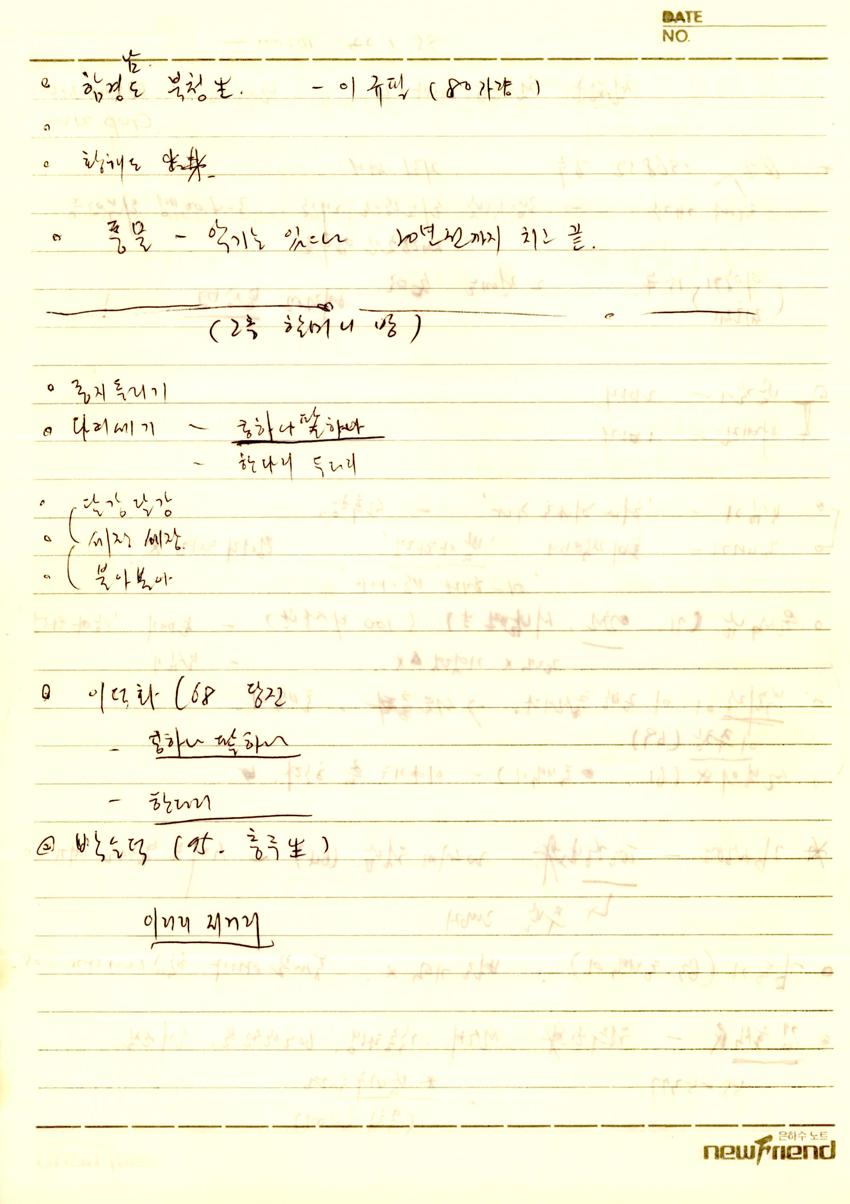 DATE
NO.
남
함경도 북청生. - 이규필 (80가량)
황해도
풍물 - 악기는 있으나 20년전까지 치고 끝.
(2층 할머니 방)
종지돌리기
다리세기 - 콩하나팥하나
- 한다리 두다리
달강달강
세장 세장
불아불아
이덕화 (68 당진
- 콩하나 팥하나
- 한다리
박능덕 (95. 홍주生)
이거리 저거리
은하수 노트
newFriend